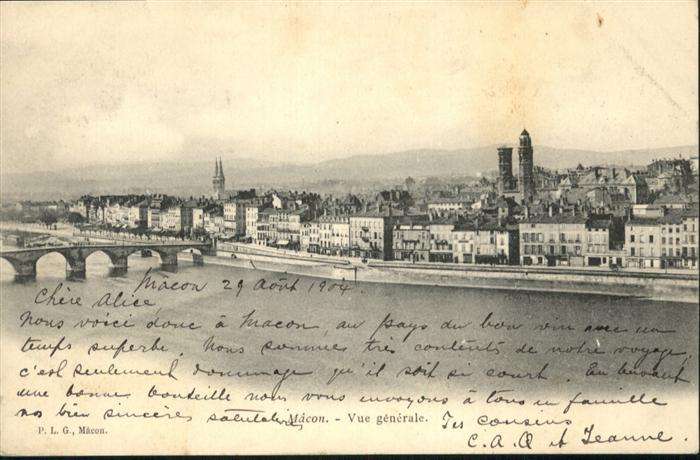 Mâcon 29 Août 1904.
Chère Alice
Nous voici donc à Macon, au pays du bon vin avec un
temps superbe. Nous sommes très contents de notre voyage,
c'est seulement dommage qu'il soit si court. En buvant
une bonne bouteille nous vous envoyons à tous en famille
nos bien sincères salutations
Mâcon. - Vue générale.
Tes cousins
C. A. Q et Jeanne.
P. L. G., Mâcon.